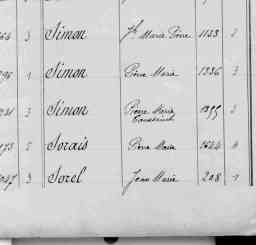 3 Simon Jh Marie Pierre 1133 2
1 Simon Pierre Marie 1336 3
3 Simon Pierre Marie
Constant 1399 2
Sorais Pierre Marie 1644 4
3 Sorel Jean Marie 208 1